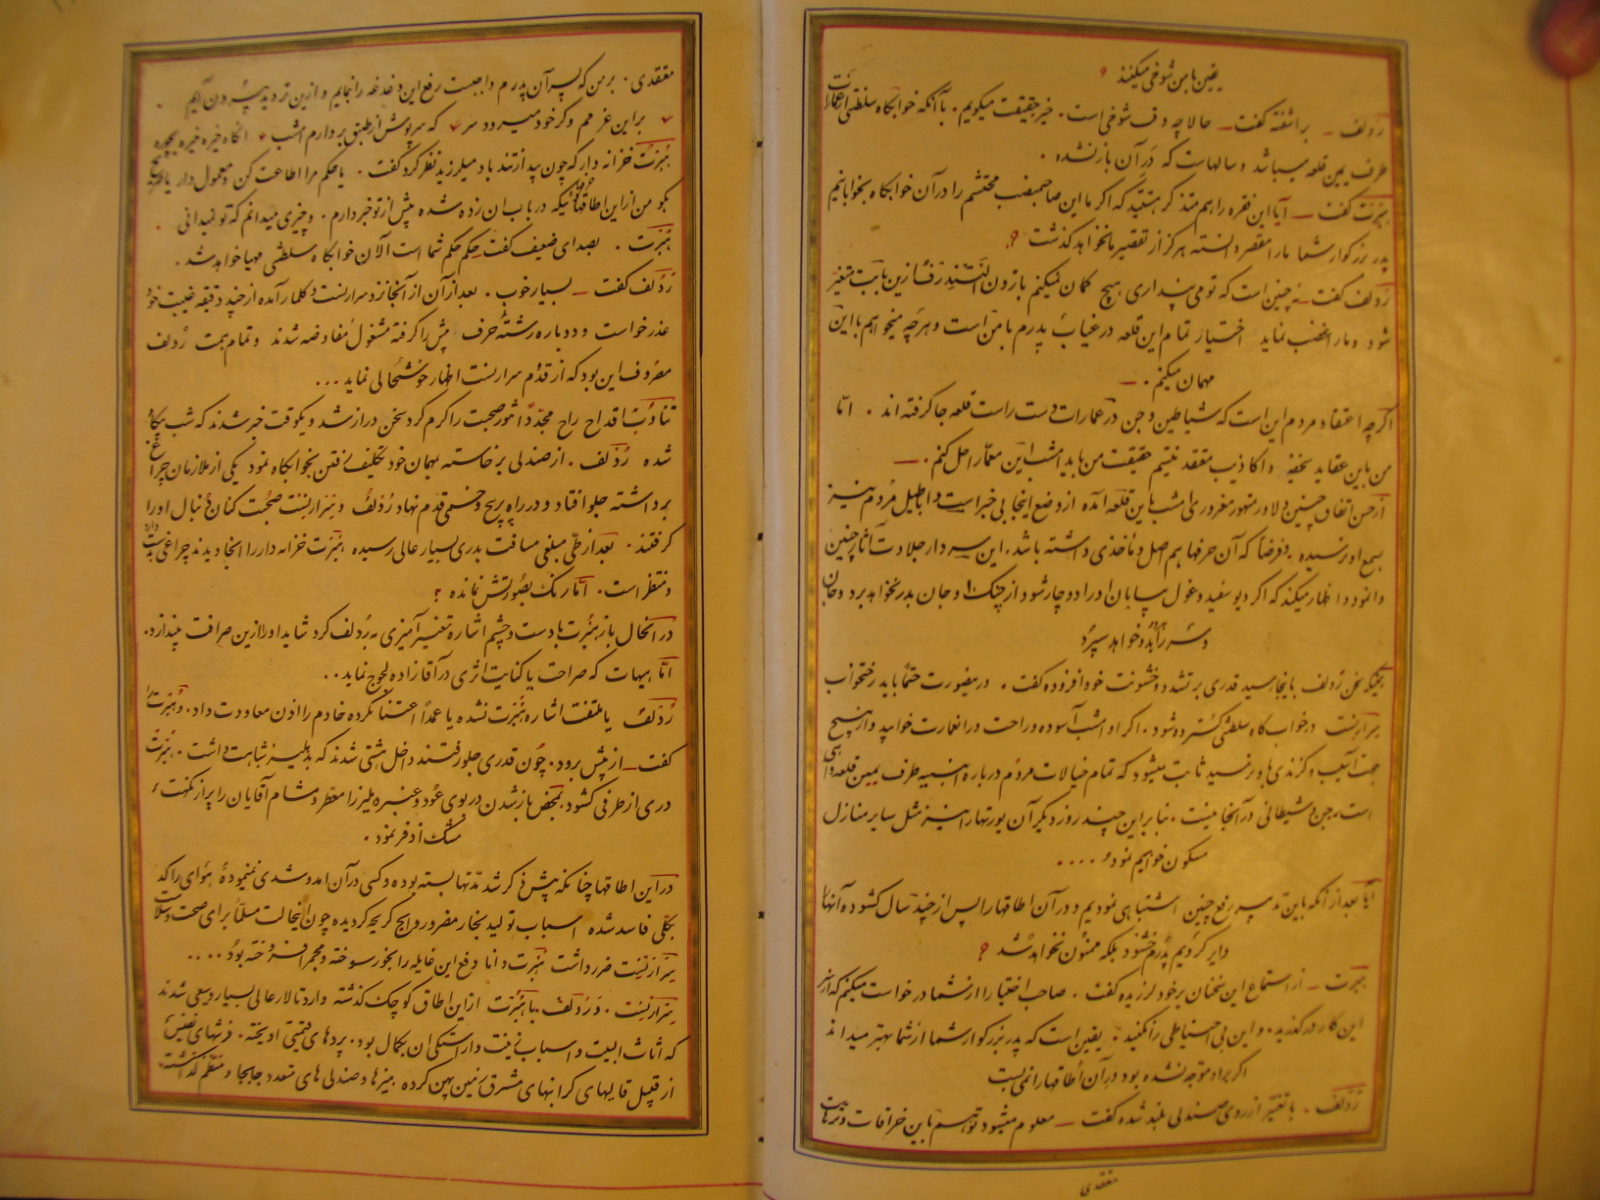 یقین با من شوخی میکنند ؟
رُدلف ــ برآشفته گفت ــ حالا چه وقت شوخی است . خیر حقیقت میگویم . با آنکه خوابگاه سلطنتی عمارات
طرف یمین قلعه میباشد و سالهاست که درِ آن باز نشده .
هُبرت گفت ــ آیا این فقره را هم متذکر هستید که اگر ما این صاحبمنصب محتشم را در آن خوابگاه بخوابانیم
پدر بزرگوار شما ما را مقصر دانسته هرگز از تقصیر ما نخواهد گذشت ؟
رُدلف گفت ــ نه چنین است که تو می پنداری هیچ گمان نمیکنم بازون از این بابت متغیر
شود و ما را غضب نماید اختیار تمام این قلعه در غیاب پدرم با من است و هر چه میخواهم با این
مهمان میکنم . ــ
اگر چه اعتقاد مردم این است که شیاطین و جن در عمارات دست راست قلعه جا گرفته اند . امّا
من باین عقاید سخیفه و اکاذیب معتقد نیستم حقیقت من باید امشب این معمّا را حل کنم . ــ
از حسن اتفاق چنین دلاور متهور مغروری امشب باین قلعه آمده از وضع اینجا بی خبر است و اباطیل مردم هنوز
بسمع او نرسیده . و فرضاً که آن حرفها هم اصل و مأخذی داشته باشد . این سردار جلادت آثار چنین
وانمود و اظهار میکند که اگر دیو سفید و غول بیابان او را دوچار شود از چنگ او جان بدر نخواهد برد و جان
خواهد سپرد
همینکه سخن رُدلف باینجا رسید قدری بر تشدد و خشونت خود افزوده گفت . در هر صورت حتماً باید رختخواب
سرارنست در خوابگاه سلطنتی گسترده شود . اگر او شب آسوده و راحت در آن عمارت خوابید و از هیچ
جهت آسیب و گزندی باو نرسید ثابت میشود که تمام خیالات مردم درباره ابنیه طرف یمین قلعه واهی
است و جن و شیطانی در آنجا نیست . بنابراین چند روز دیگر آن بورتها را هم مثل سایر منازل
مسکون خواهیم نمود . . . .
امّا بعد از آنکه باین تدبیر رفع چنین اشتباهی نمودیم و در آن اطاقها را پس از چند سال گشوده آنها را
دایر کردیم پدرم خشنود بلکه ممنون نخواهد شد ؟
هبرت ــ از استماع این سخنان بر خود لرزیده گفت . صاحب اختیارا از شما درخواست میکنم که از سر
این کار درگذرید . و این بی احتیاطی را نکنید . یقین است که پدر بزرگوار شما از شما بهتر میداند
اگر مراد متوجه نشده بود درِ آن اطاقها را نمی بست
رُدلف . با تغیّر از روی صندلی بلند شده گفت ــ معلوم میشود تو هم باین خرافات و ترهات
معتقدی
معتقدی . بر من که پسر آن پدرم واجبست رفع این دغدغه را بنمایم و از این تردید بیرون آیم
بر این عزمم وگر خود میرود سر که سرپوش از طبق بردارم امشب . آنگاه خیره خیره بچهره
هُبرت خزانه دار که چون بید از تند باد میلرزید نظر کرد گفت . یا حکم مرا اطاعت کن و معمول دار یا صریح
بگو من از این اطاقهائیکه درِ باب آن زده شده پیش از تو خبر دارم . و چیزی میدانم که تو نمیدانی .
هُبرت . بصدای ضعیف گفت حکم حکم شما است الآن خوابگاه سلطنتی مهیا خواهد شد .
رُدلف گفت ــ بسیار خوب . بعد از آن از آنجا نزد سرارنست و کلمار آمده از چند دقیقه غیبت خود
عذر خواست و دوباره رشتهٔ حرف پیش را گرفته مشغول مفاوضه شدند و تمام همت رُدلف
مصروف این بود که از قدوم سرارنست اظهار خوشحالی نماید ...
تناوب اقداح راح مجدّداً شور صحبت را گرم کرد سخن دراز شد و یکوقت خبر شدند که شب بیگاه
شده رُدلف . از صندلی برخاسته بمهمان خود تکلیف رفتن بخوابگاه نمود یکی از ملازمان چراغ
برداشته جلو افتاد و در راه پر پیچ و خمی قدم نهاد رُدلف و سرارنست صحبت کنان دنبال او را
گرفتند . بعد از طیّ مبلغی مسافت بدری بسیار عالی رسیده هُبرت خزانه دار را آنجا دیدند چراغی بدست دارد
و منتظر است . امّا رنگ بصورتش نمانده ؟
در آنحال باز هُبرت با دست و چشم اشاره تعییر آمیزی به رُدلف کرد شاید او را از این صرافت بیندازد .
امّا هیهات که صراحت یا کنایت اثری در آقا زاده لجوج نماید . .
رُدلف یا ملتفت اشاره هُبرت نشده یا عمداً اعتنا نکرده خادم را اذن معاودت داد . و هُبرت را
گفت ــ از پیش برود . چون قدری جلو رفتند داخل هشتی شدند که بدهلیز شباهت داشت . هبرت
دری از طرفی گشود . بمحض باز شدن در بوی عُود و عنبر دهلیز را معطر و مشام آقایان را پر از نکهت
مشک اذفر نمود .
در این اطاقها چنانکه پیش ذکر شد مدتها بسته بوده و کسی در آن آمد و شدی ننموده هوای راکد
بکلّی فاسد شده اسباب تولید بخار مضر و روایح کریهه گردیده چون این حالت مسلماً برای صحت و سلامت
سرارنست ضرر داشت هُبرت دانا دفع این غایله را بخور سوخته و مجمر افروخته بود . . . .
سرارنست . و رُدلف . با هُبرت از این اطاق کوچک گذشته وارد تالار عالی بسیار وسیعی شدند
که اثاث البیت و اسباب زینت و آراستگی آن بکمال بود . پرده های قیمتی آویخته . فرشهای نفیس
از قبیل قالیهای گرانبهای مشرق زمین پهن کرده میزها و صندلی های متعدد جابجا و منظم گذاشته